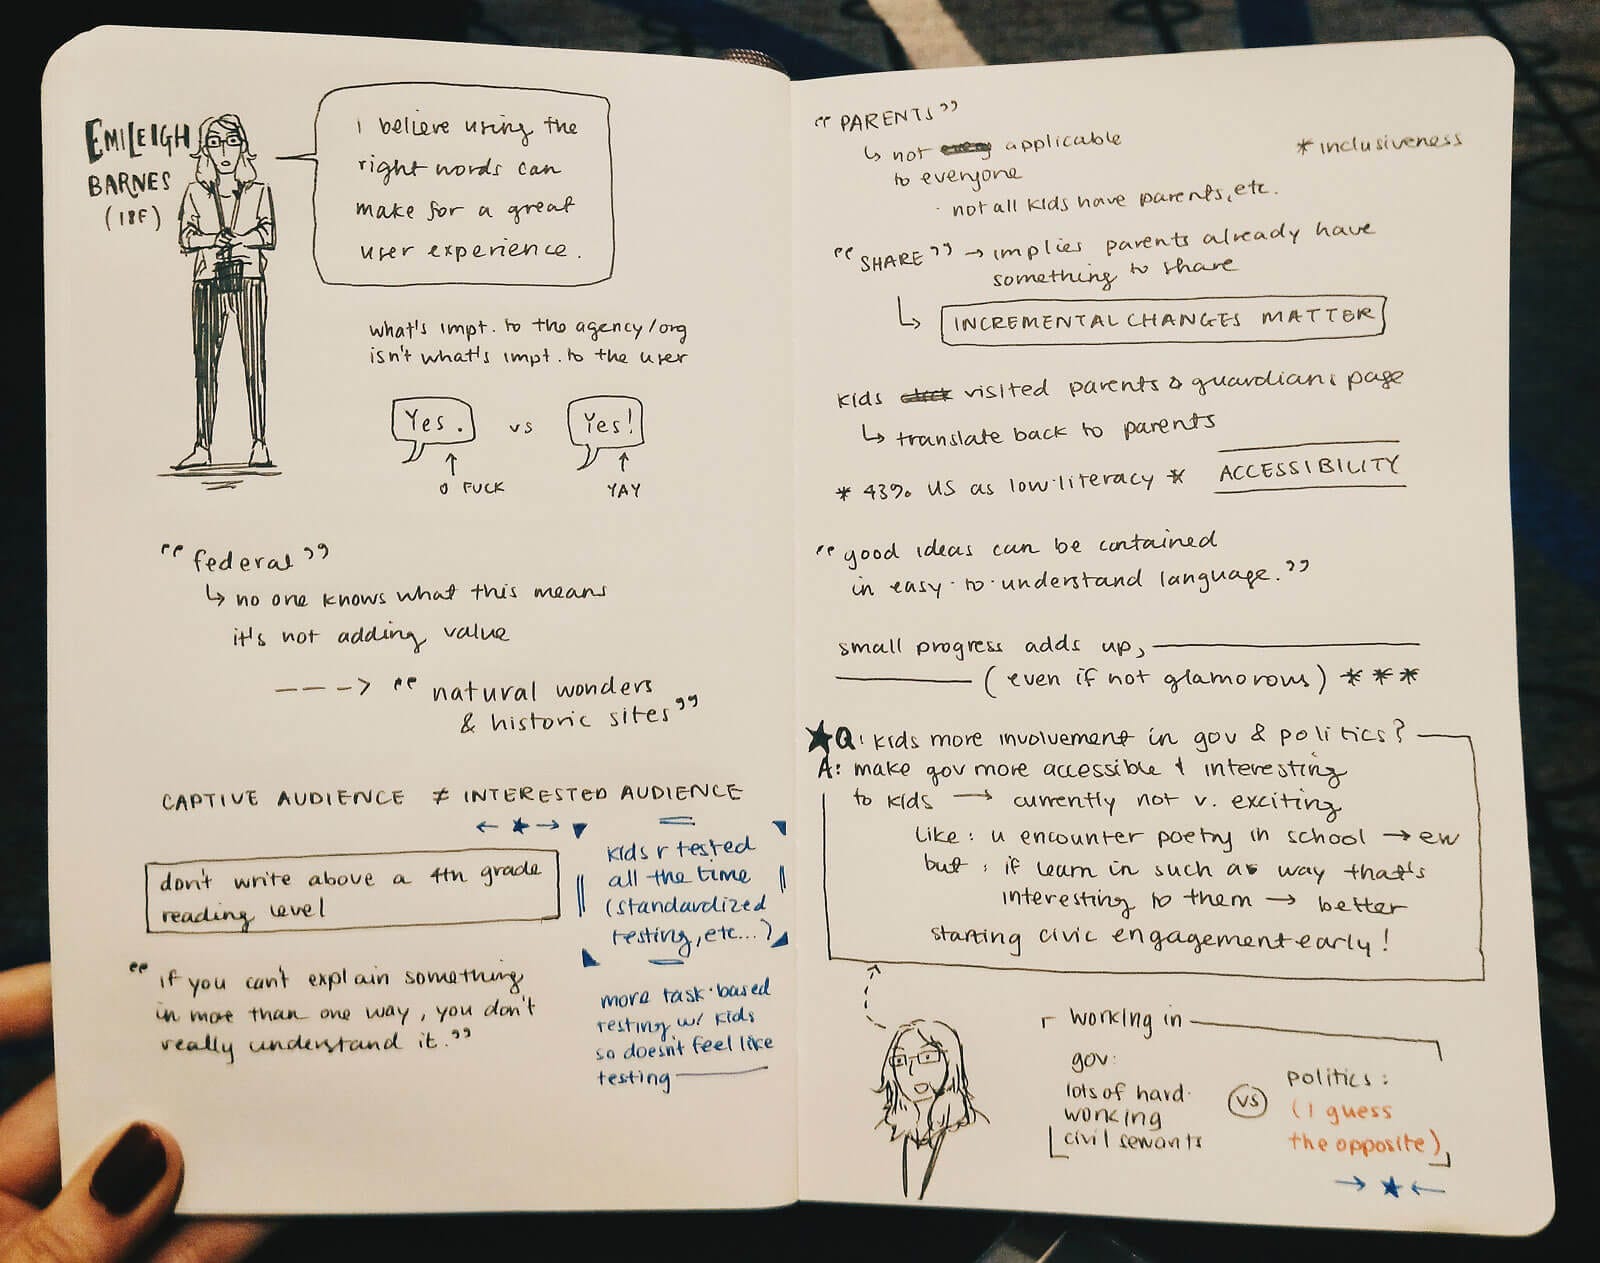 EMILEIGH
BARNES
(18F)
I believe using the
right words can
make for a great
user experience.
what's impt. to the agency/org
isn't what's impt. to the user
Yes. vs Yes!
O FUCK YAY
"federal"
↳ no one knows what this means
it's not adding value
----> "natural wonders
& historic sites"
CAPTIVE AUDIENCE ≠ INTERESTED AUDIENCE
← ★ →
don't write above a 4th grade
reading level
"if you can't explain something
in more than one way, you don't
really understand it."
kids r tested
all the time
(standardized
testing, etc...)
more task-based
testing w/ kids
so doesn't feel like
testing
"PARENTS"
↳ not applicable
to everyone
· not all kids have parents, etc.
* inclusiveness
"SHARE" → implies parents already have
something to share
↳ INCREMENTAL CHANGES MATTER
kids visited parents & guardians page
↳ translate back to parents
* 43% US as low-literacy * ACCESSIBILITY
"good ideas can be contained
in easy-to-understand language."
small progress adds up,
(even if not glamorous) * * *
★ Q: kids more involvement in gov & politics?
A: make gov more accessible & interesting
to kids → currently not v. exciting
like: u encounter poetry in school → ew
but: if learn in such a way that's
interesting to them → better
starting civic engagement early!
working in
gov:
lots of hard-
working
civil servants
vs
politics:
(I guess
the opposite)
→ ★ ←